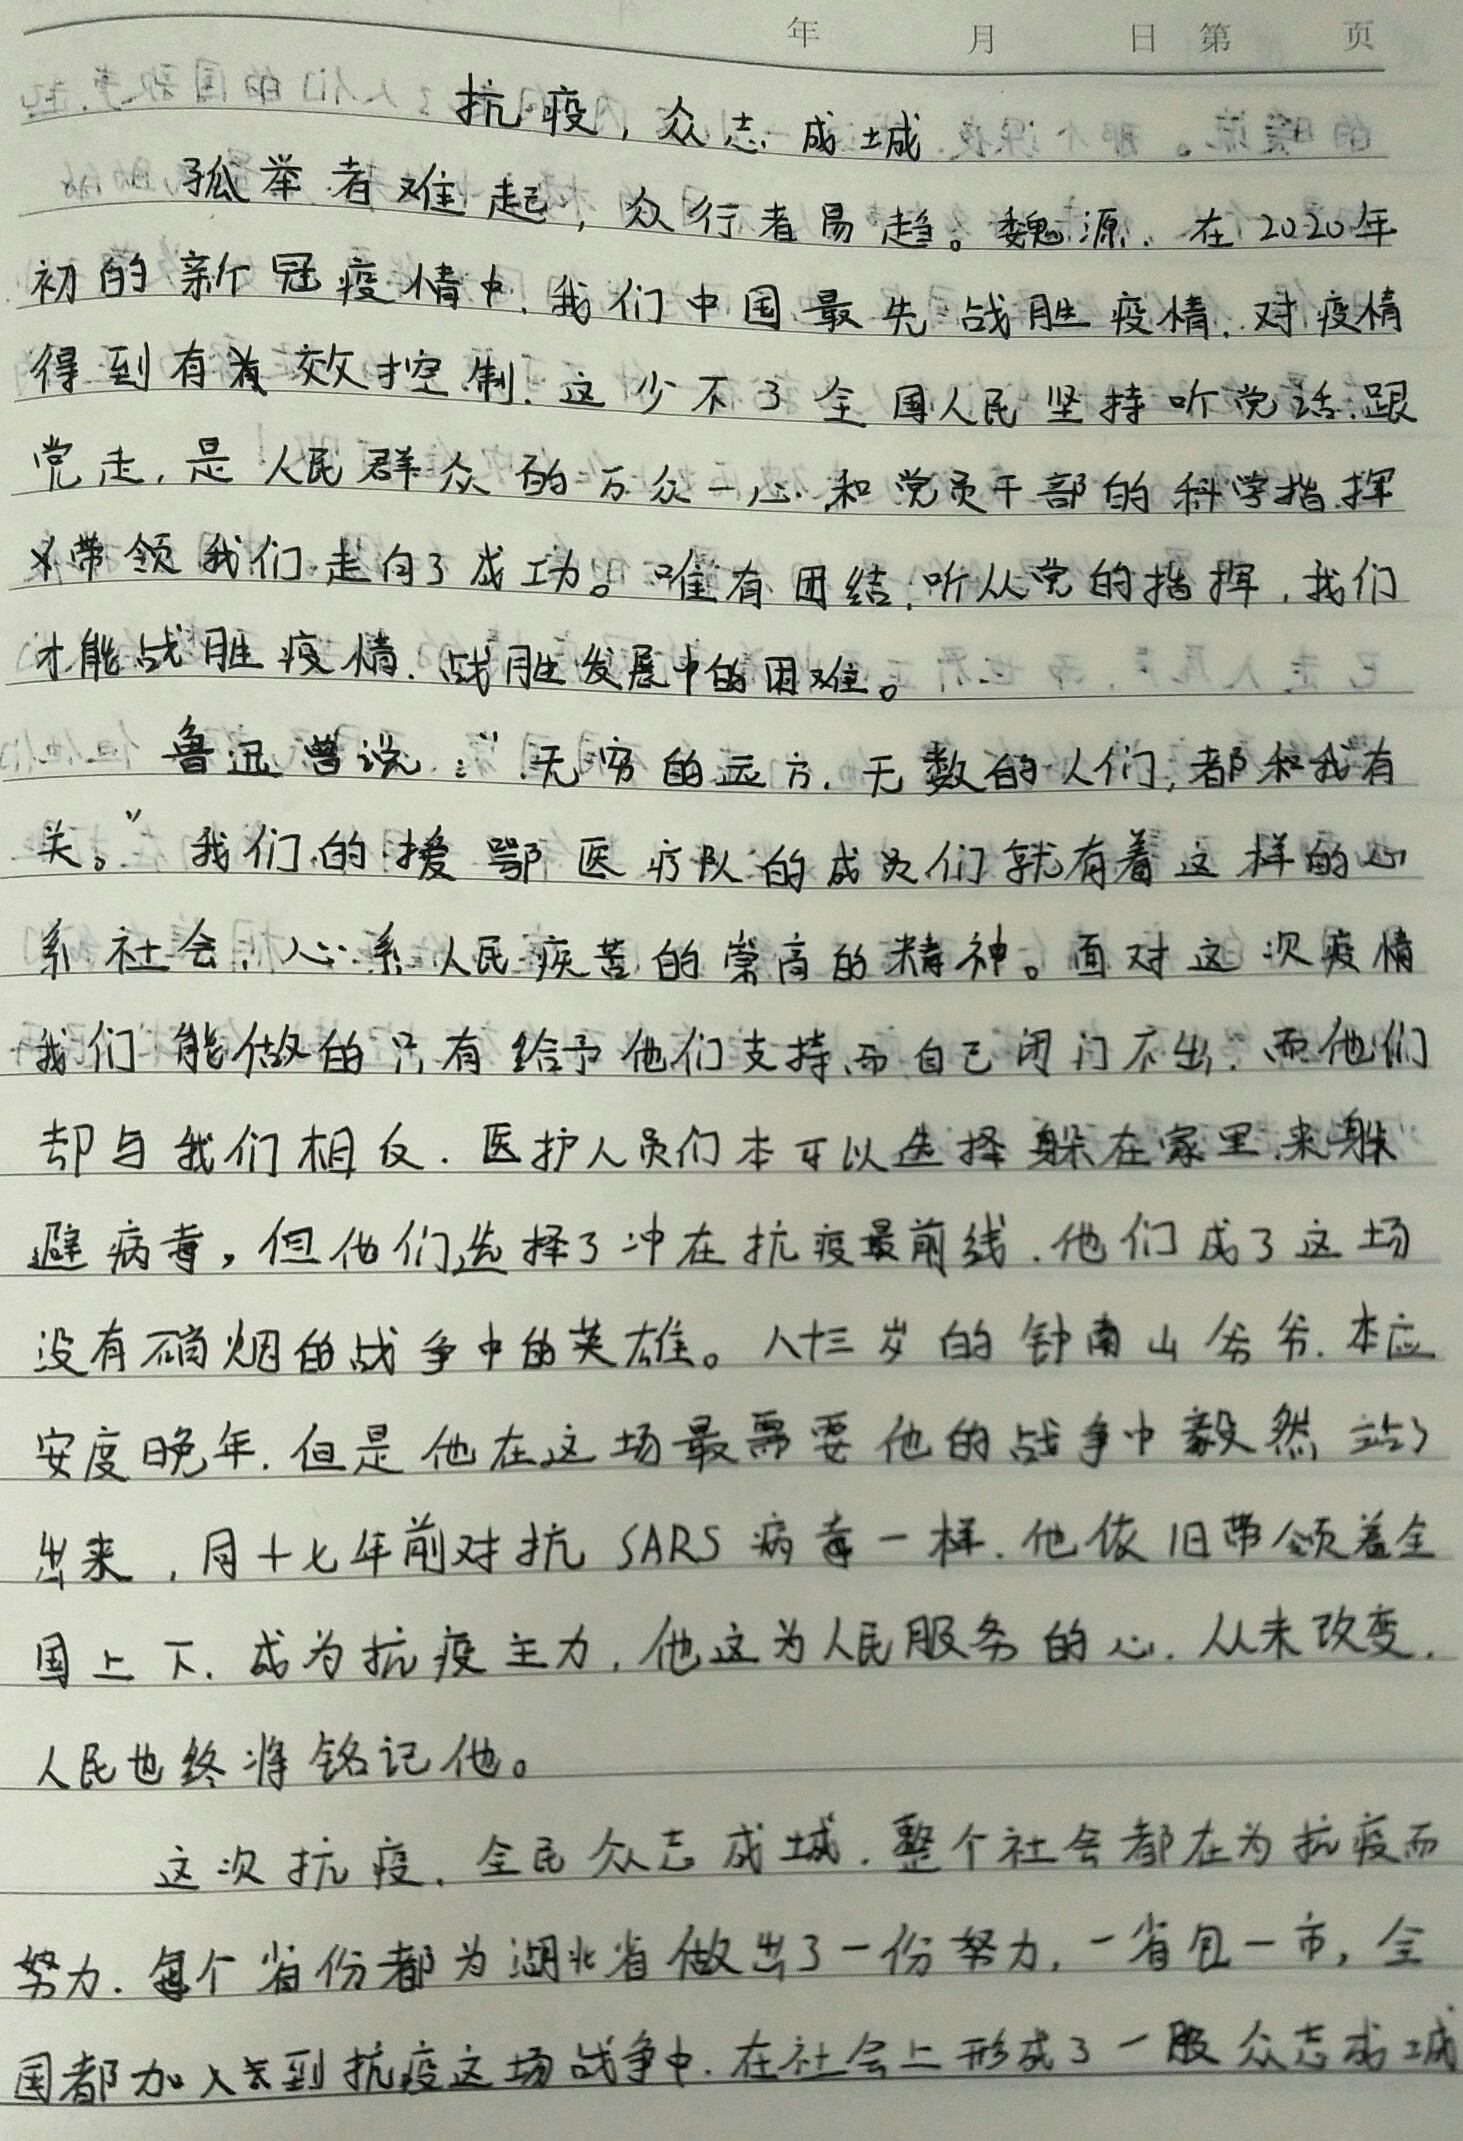 年 月 日 第 页
抗疫，众志成城
孤举者难起，众行者易趋。魏源．在2020年
初的新冠疫情中．我们中国最先战胜疫情．对疫情
得到有效控制．这少不了全国人民坚持听党话．跟
党走．是人民群众的万众一心．和党员干部的科学指挥
带领我们走向了成功。唯有团结．听从党的指挥．我们
才能战胜疫情．战胜发展中的困难。
鲁迅曾说：“无穷的远方．无数的人们，都和我有
关。”我们的援鄂医疗队的成员们就有着这样的心
系社会．心系人民疾苦的崇高的精神。面对这次疫情
我们能做的只有给予他们支持而自己闭门不出．而他们
却与我们相反．医护人员们本可以选择躲在家里．来躲
避病毒，但他们选择了冲在抗疫最前线．他们成了这场
没有硝烟的战争中的英雄。八十三岁的钟南山爷爷．本应
安度晚年．但是他在这场最需要他的战争中毅然站了
出来，同十七年前对抗SARS病毒一样．他依旧带领着全
国上下．成为抗疫主力．他这为人民服务的心．从未改变．
人民也终将铭记他。
这次抗疫．全民众志成城．整个社会都在为抗疫而
努力．每个省份都为湖北省做出了一份努力．一省包一市，全
国都加入到抗疫这场战争中．在社会上形成了一股众志成城